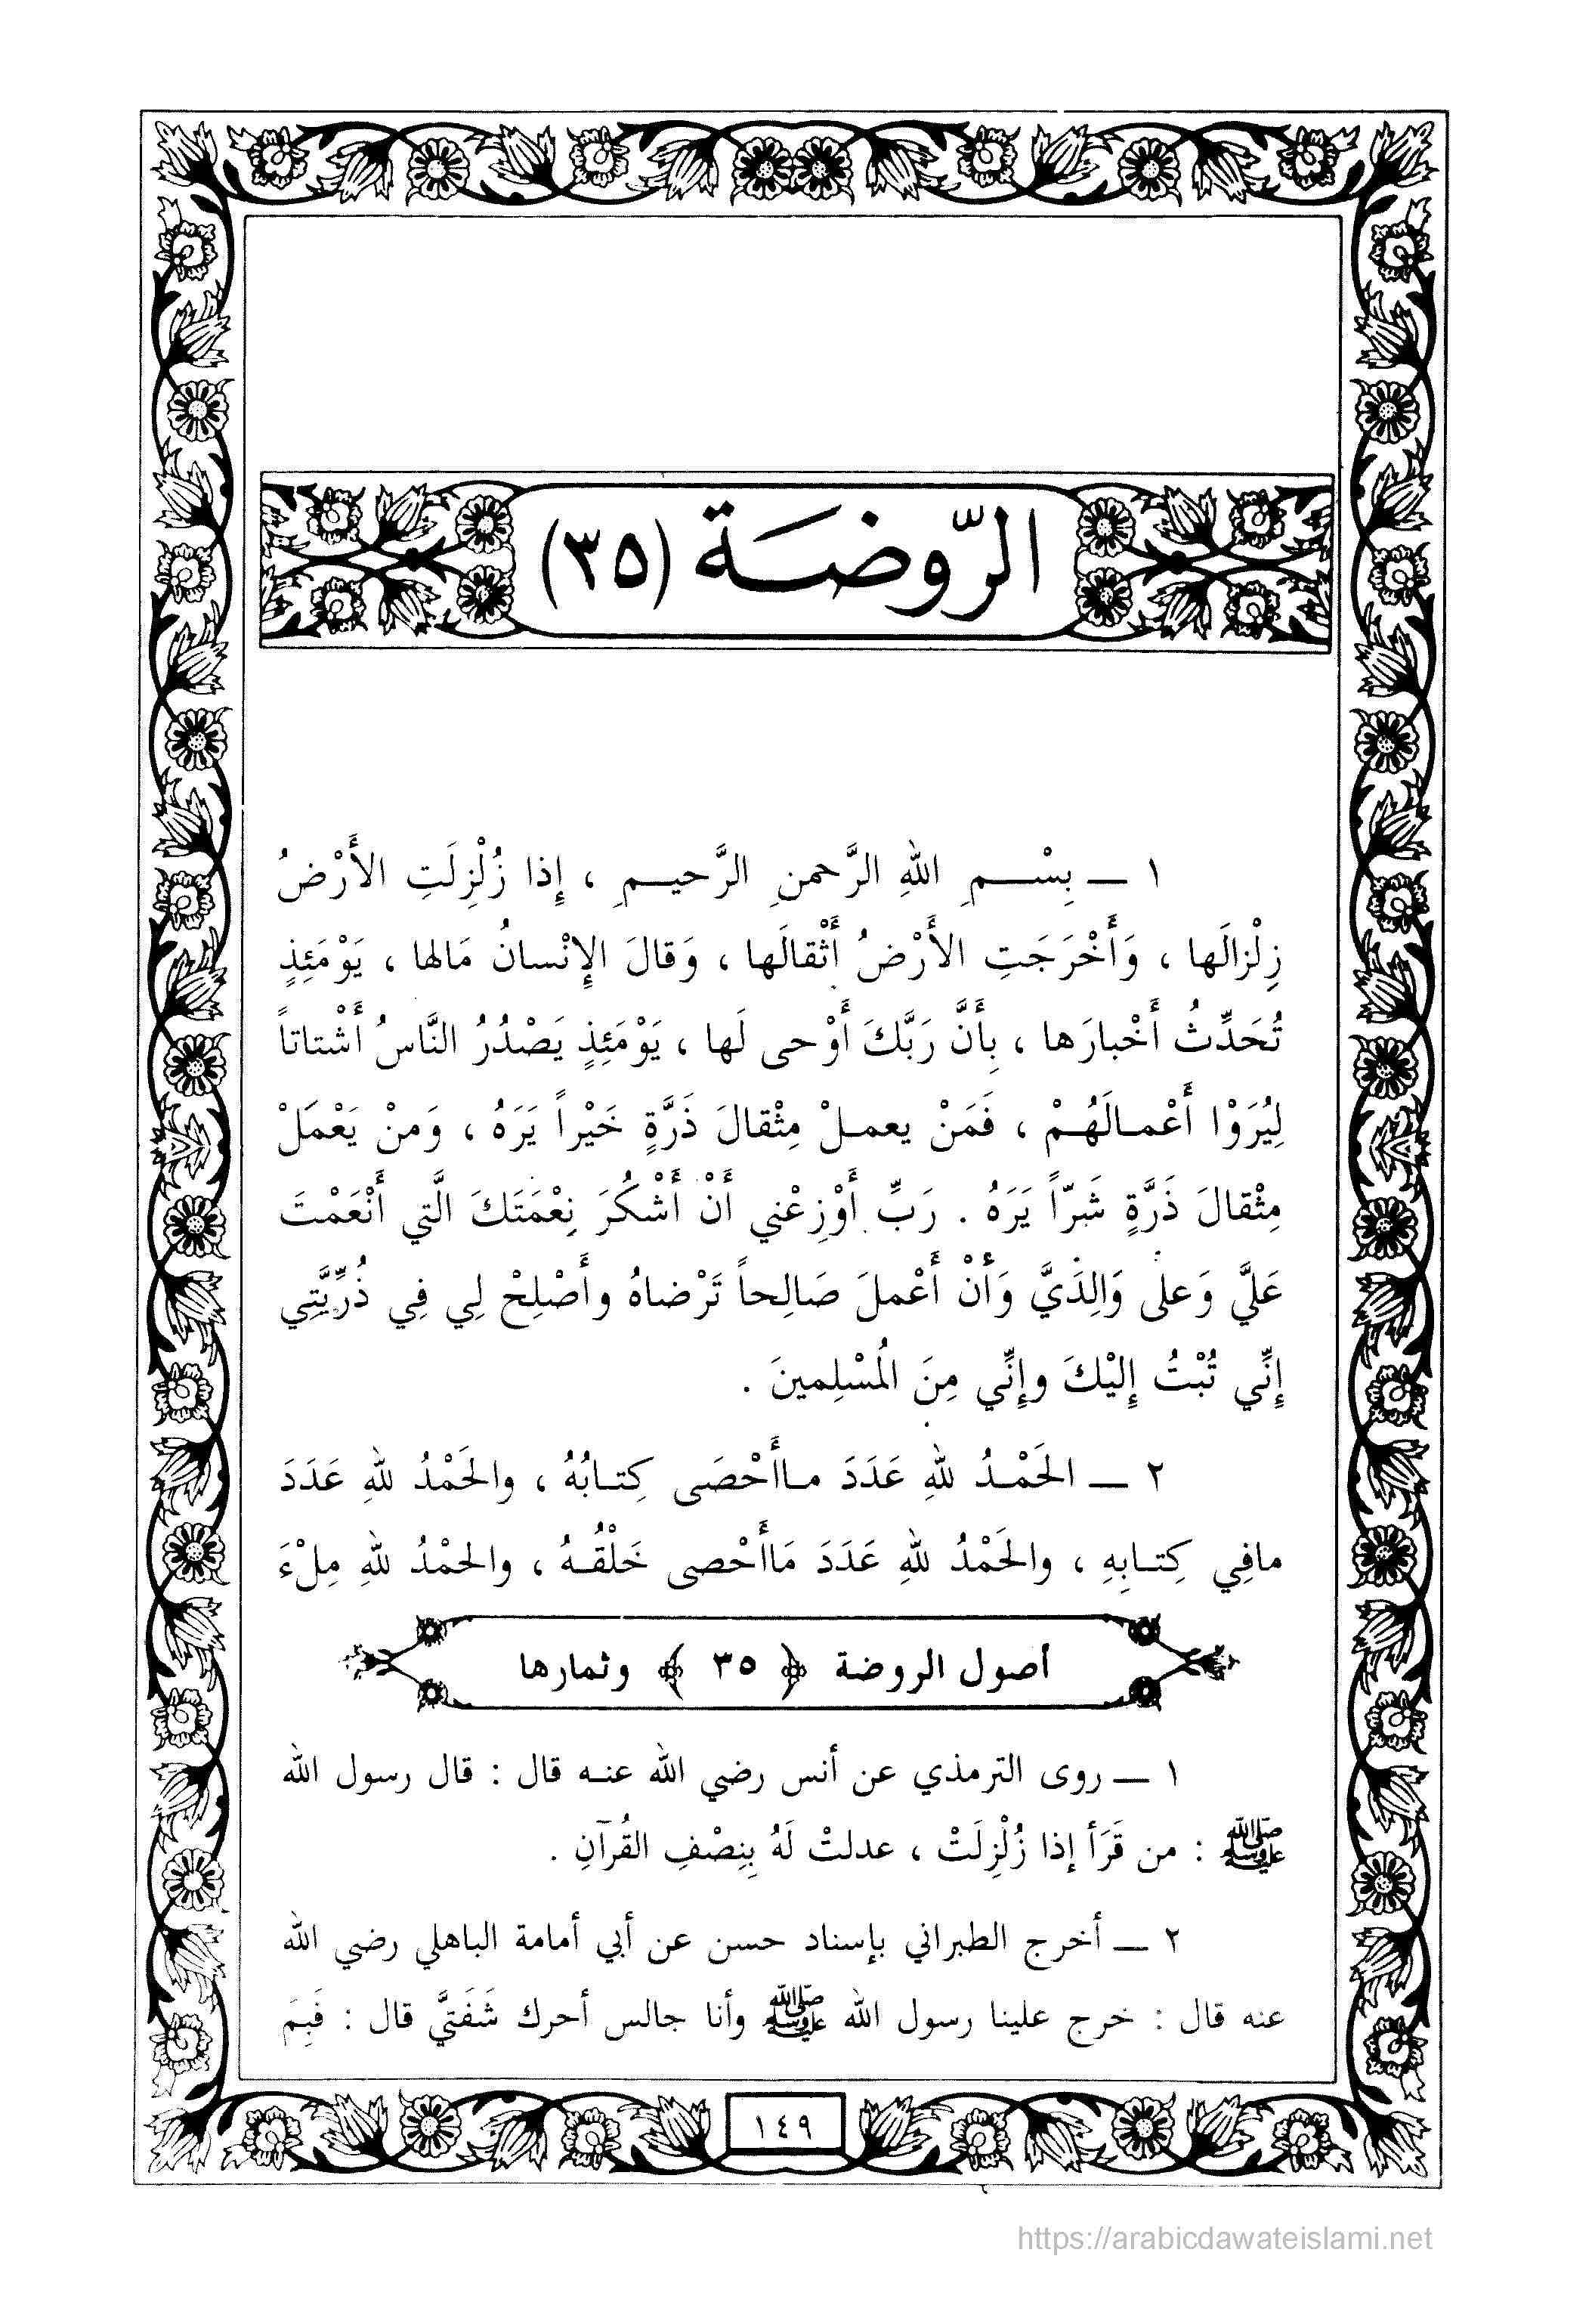 الرّوضة (٣٥)
١ ـ بِسْمِ اللهِ الرَّحمنِ الرَّحيمِ ، إِذا زُلْزِلَتِ الأَرْضُ
زِلْزالَها ، وَأَخْرَجَتِ الأَرْضُ أَثْقالَها ، وَقالَ الإِنْسانُ مَالها ، يَوْمَئِذٍ
تُحَدِّثُ أَخْبارَها ، بِأَنَّ رَبَّكَ أَوْحى لَها ، يَوْمَئِذٍ يَصْدُرُ النَّاسُ أَشْتاتاً
لِيُرَوْا أَعْمالَهُمْ ، فَمَنْ يعملْ مِثْقالَ ذَرَّةٍ خَيْراً يَرَهُ ، وَمَنْ يَعْمَلْ
مِثْقالَ ذَرَّةٍ شَرّاً يَرَهُ . رَبِّ أَوْزِعْني أَنْ أَشْكُرَ نِعْمَتَكَ الَّتي أَنْعَمْتَ
عَلَيَّ وَعلى وَالِدَيَّ وَأَنْ أَعْملَ صَالِحاً تَرْضاهُ وأَصْلِحْ لِي فِي ذُرِّيَّتِي
إِنِّي تُبْتُ إِلَيْكَ وإِنِّي مِنَ المُسْلِمينَ .
٢ ـ الحَمْدُ للهِ عَدَدَ ماأَحْصَى كِتابُهُ ، والحَمْدُ للهِ عَدَدَ
مافِي كِتابِهِ ، والحَمْدُ للهِ عَدَدَ مَاأَحْصى خَلْقُهُ ، والحمْدُ للهِ مِلْءَ
أصول الروضة ﴿ ٣٥ ﴾ وثمارها
١ ـ روى الترمذي عن أنس رضي الله عنه قال : قال رسول الله
ﷺ : من قَرَأ إذا زُلْزِلَتْ ، عدلتْ لَهُ بِنِصْفِ القُرآنِ .
٢ ـ أخرج الطبراني بإسناد حسن عن أبي أمامة الباهلي رضي الله
عنه قال : خرج علينا رسول الله ﷺ وأنا جالس أحرك شَفَتَيَّ قال : فَبِمَ
١٤٩
https://arabicdawateislami.net